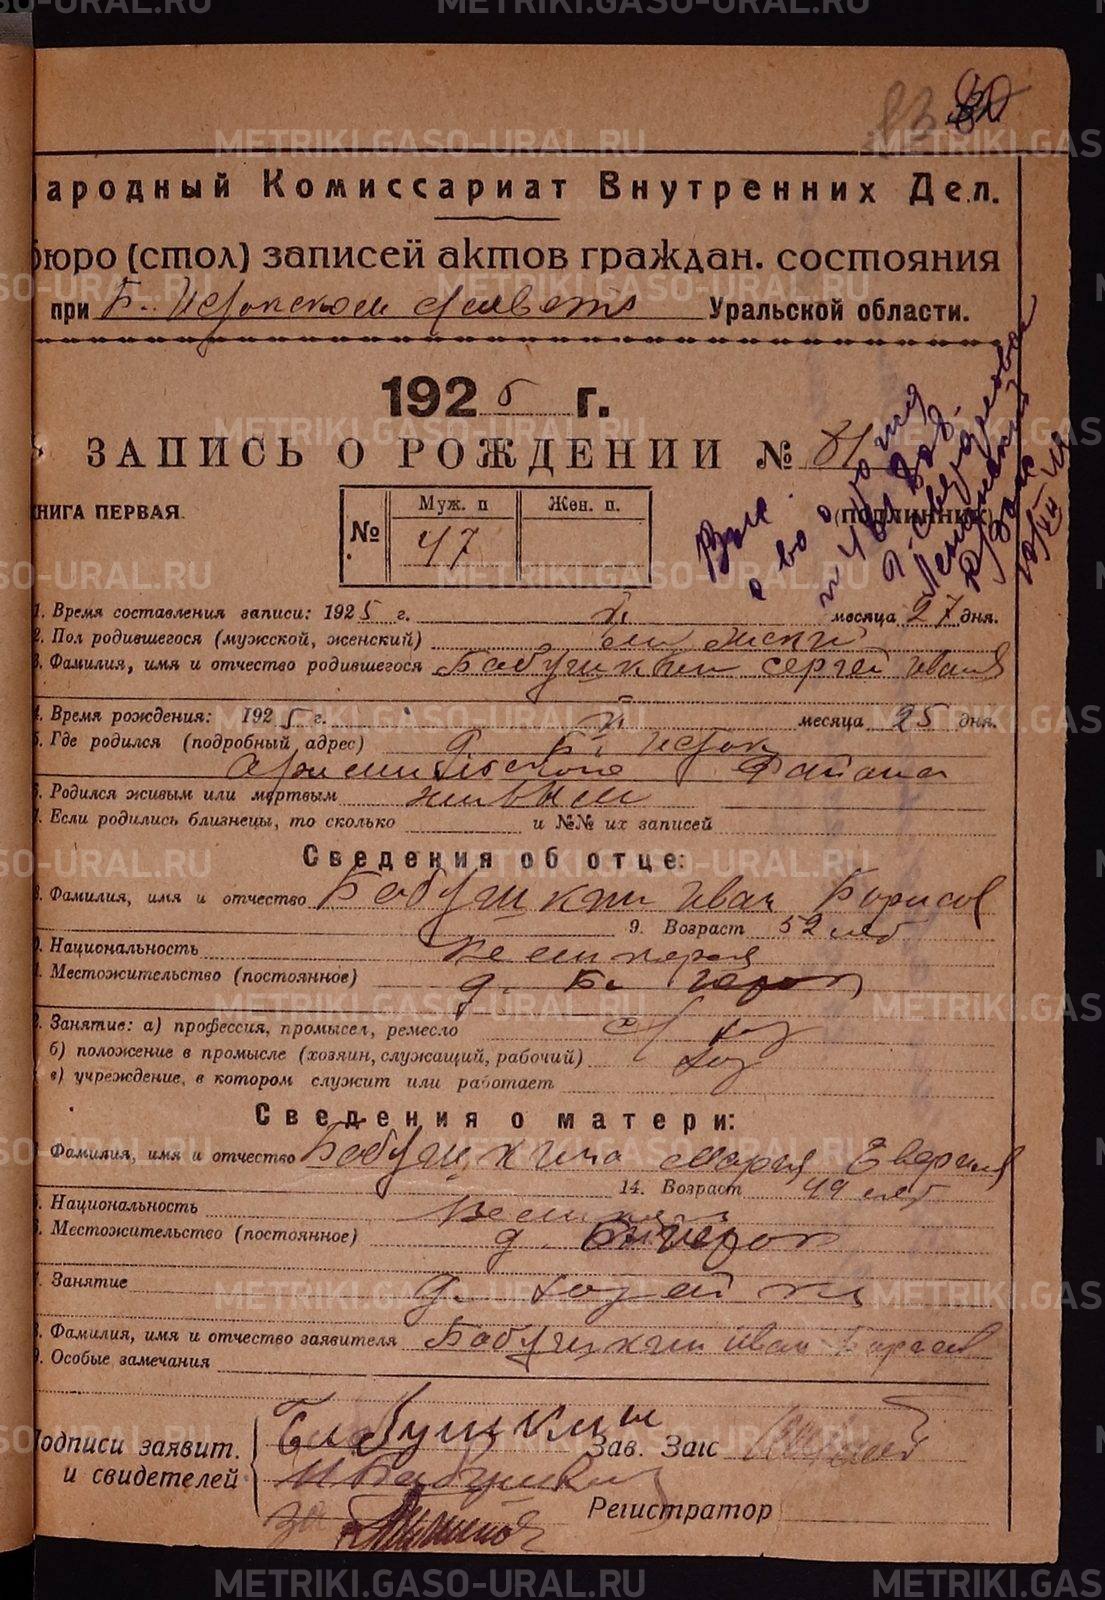 80
83
Народный Комиссариат Внутренних Дел.
бюро (стол) записей актов граждан. состояния
при Б. Уральской области.
1925 г.
ЗАПИСЬ О РОЖДЕНИИ № 81
КНИГА ПЕРВАЯ.
(подлинник)
№ Муж. п Жен. п.
47
1. Время составления записи: 1925 г. месяца 27 дня.
2. Пол родившегося (мужской, женский)
3. Фамилия, имя и отчество родившегося Бабушкин Сергей Иванов
4. Время рождения: 1925 г. месяца 25 дня.
5. Где родился (подробный адрес) д. Б. Исток
Арамильского района
6. Родился живым или мертвым живым
7. Если родились близнецы, то сколько и №№ их записей
Сведения об отце:
8. Фамилия, имя и отчество Бабушкин Иван Борисов
9. Возраст 52 лет
10. Национальность
11. Местожительство (постоянное) д. Б. Исток
12. Занятие: а) профессия, промысел, ремесло с/хоз
б) положение в промысле (хозяин, служащий, рабочий) хоз
в) учреждение, в котором служит или работает
Сведения о матери:
13. Фамилия, имя и отчество Бабушкина Мария
14. Возраст 49 лет
15. Национальность
16. Местожительство (постоянное) д. Б. Исток
17. Занятие д. хозяйка
18. Фамилия, имя и отчество заявителя Бабушкин Иван Борисов
19. Особые замечания
Подписи заявит. и свидетелей
Бабушкин
И Бабушкин
за
Зав. Загс
Регистратор
METRIKI.GASO-URAL.RU